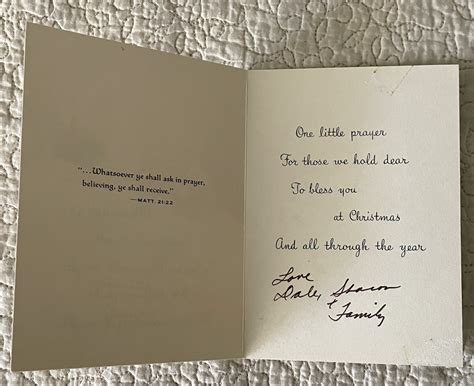 “...Whatsoever ye shall ask in prayer,
believing, ye shall receive.”
—MATT. 21:22
One little prayer
For those we hold dear
To bless you
at Christmas
And all through the year
Love
Dale, Sharon
& Family